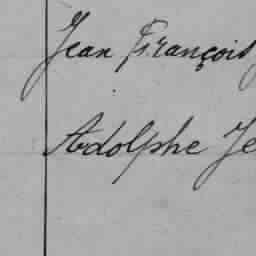 Jean François
Adolphe Je